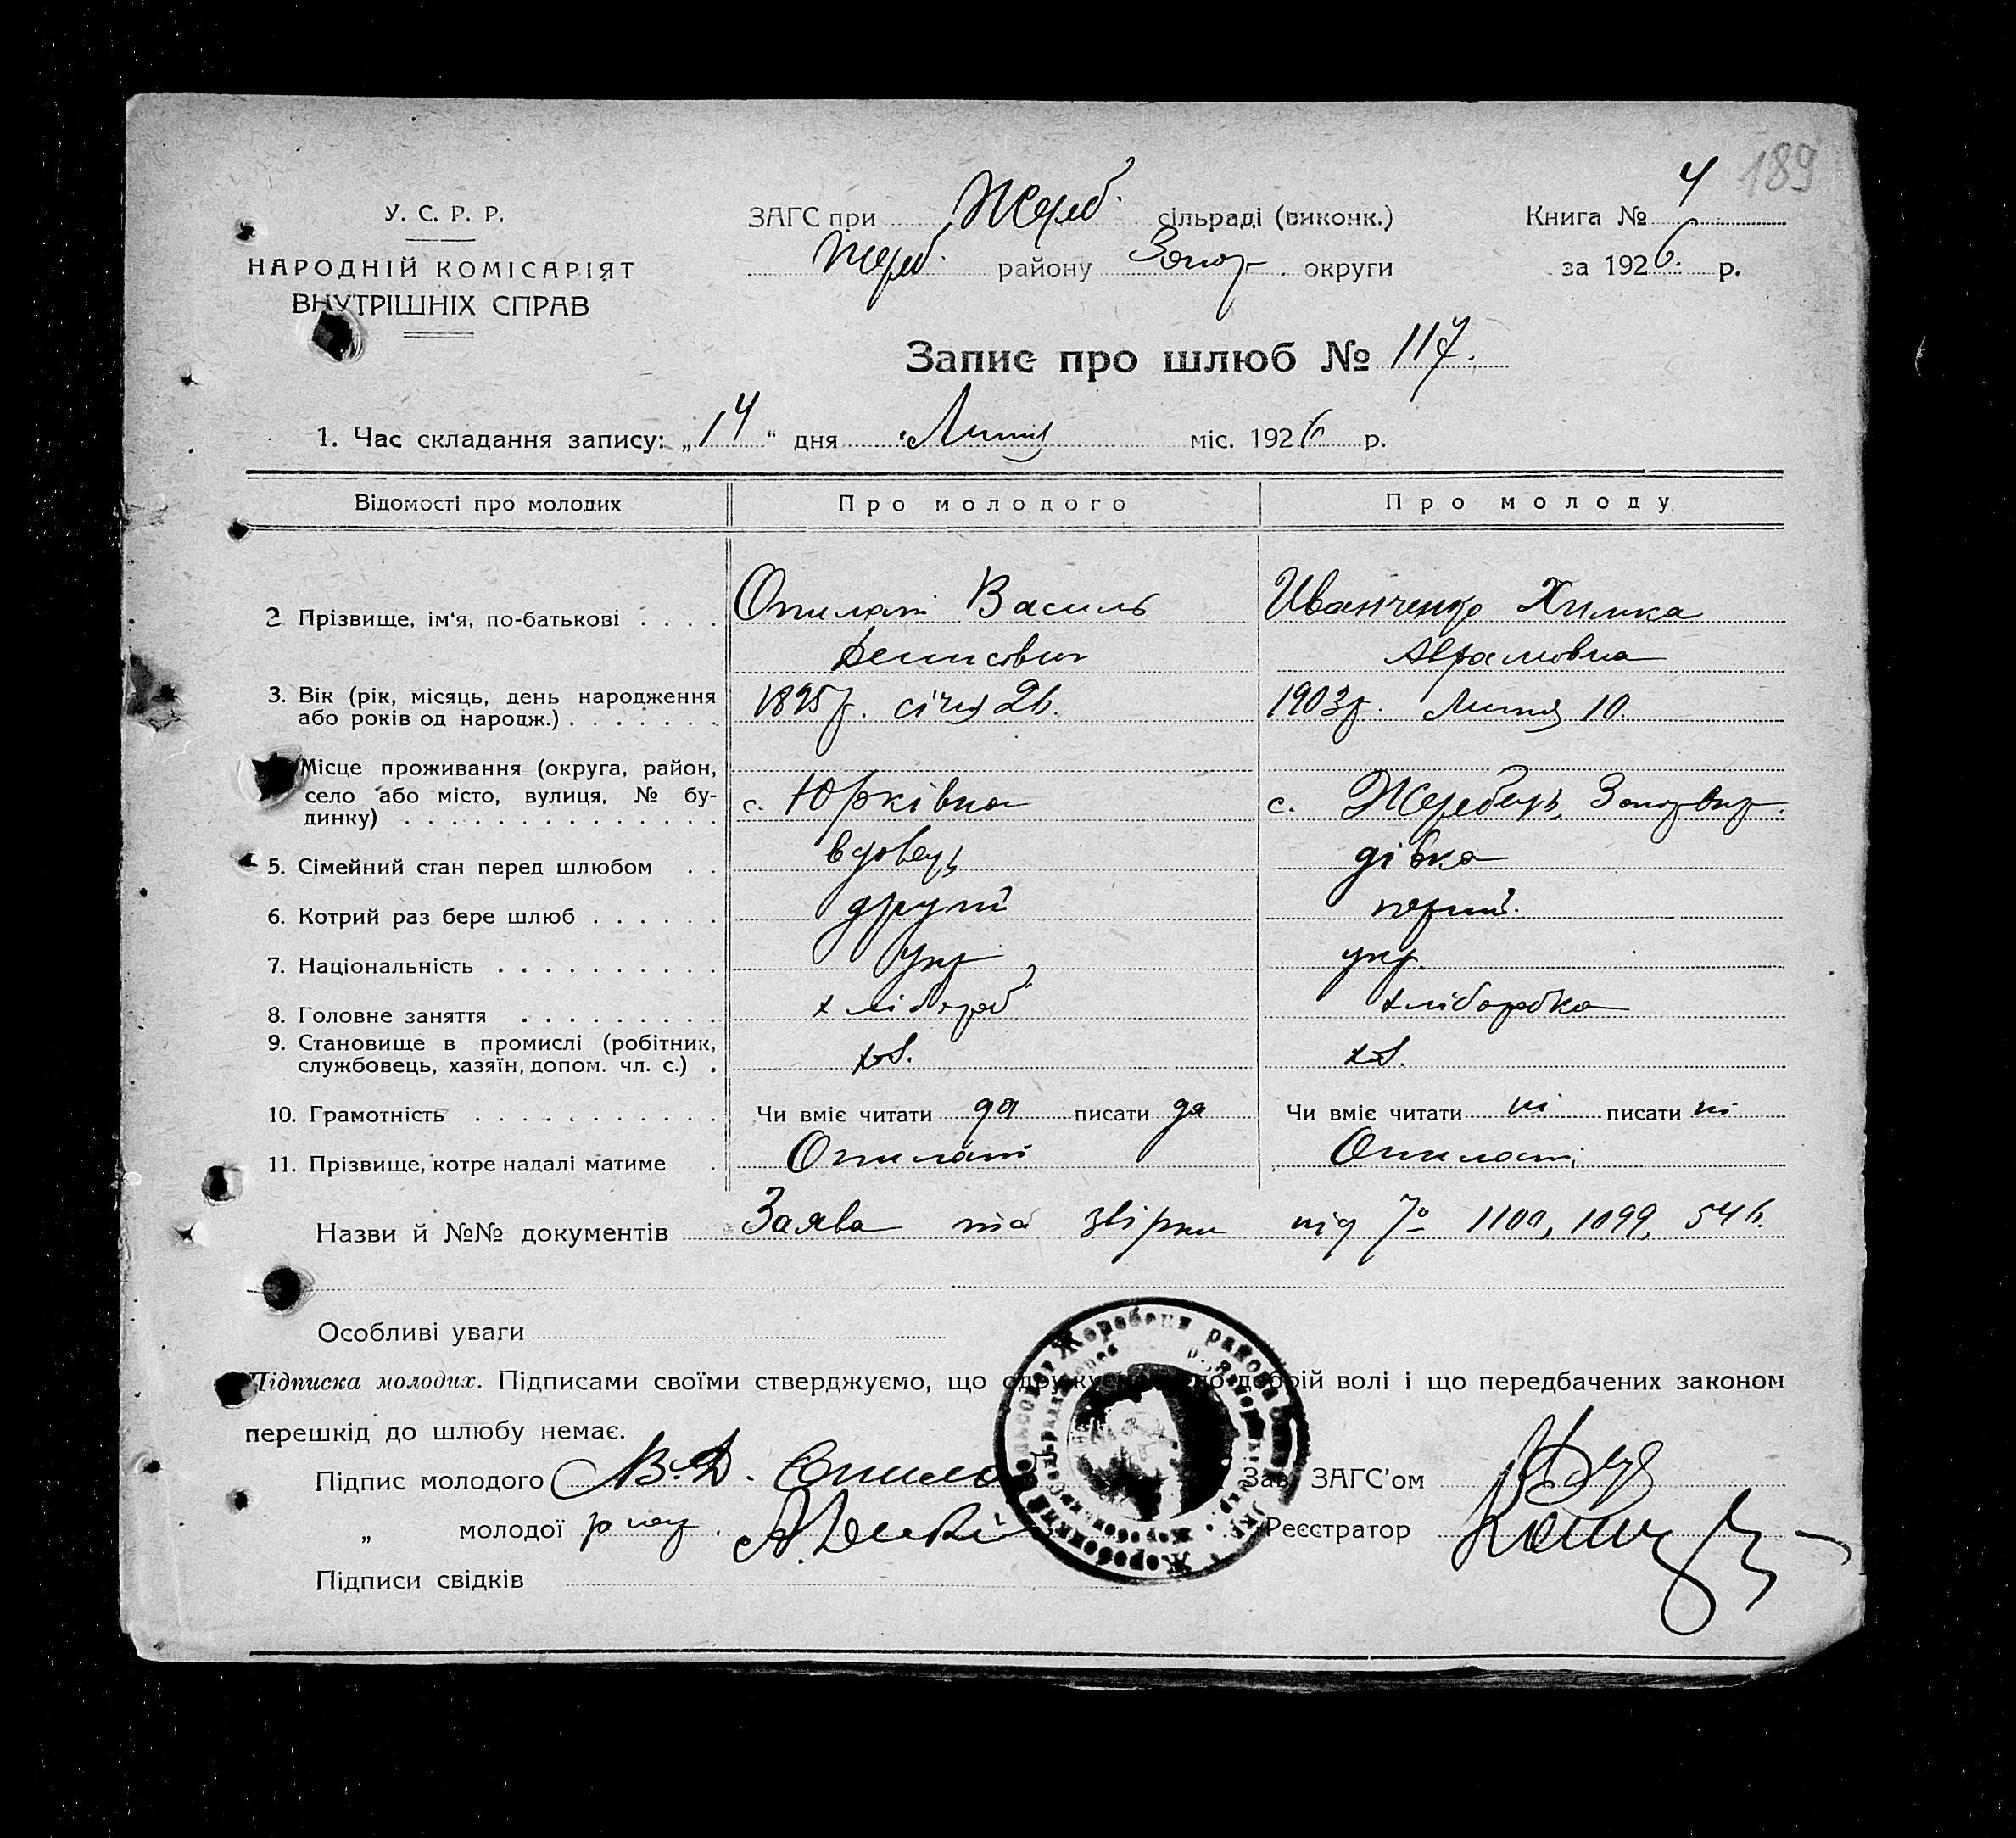 189
У. С. Р. Р. ЗАГС при Жереб. сільраді (виконк.) Книга № 4
НАРОДНІЙ КОМІСАРІЯТ Жереб. району Запор. округи за 1926. р.
ВНУТРІШНІХ СПРАВ
Запис про шлюб № 117.
1. Час складання запису: „14“ дня Липня міс. 1926 р.
Відомості про молодих Про молодого Про молоду
2 Прізвище, ім'я, по-батькові . . . . Опилат Василь Иванченко Химка
Денисович Аврамовна
3. Вік (рік, місяць, день народження 1895 р. січня 26. 1903 р. Липня 10.
або років од народж.) . . . . . . .
Місце проживання (округа, район,
село або місто, вулиця, № бу- с. Юрківка с. Жеребець, Запор Окр.
динку) . . . . . . . . . . . . . .
5. Сімейний стан перед шлюбом . . вдовець дівка
6. Котрий раз бере шлюб . . . . . . другий перший.
7. Національність . . . . . . . . . . укр укр.
8. Головне заняття . . . . . . . . . хлібороб хліборобка
9. Становище в промислі (робітник,
службовець, хазяїн, допом. чл. с.) . хоз. хоз.
10. Грамотність . . . . . . . . . . . Чи вміє читати да писати да Чи вміє читати ні писати ні
11. Прізвище, котре надалі матиме . Опилат Опилат
Назви й №№ документів Заява та звірки під № 1100, 1099, 546.
Особливі уваги
Підписка молодих. Підписами своїми стверджуємо, що одружуємось по добрій волі і що передбачених законом
перешкід до шлюбу немає.
Підпис молодого В. Д. Опила Зав. ЗАГС'ом
„ молодої за неу. Реєстратор
Підписи свідків